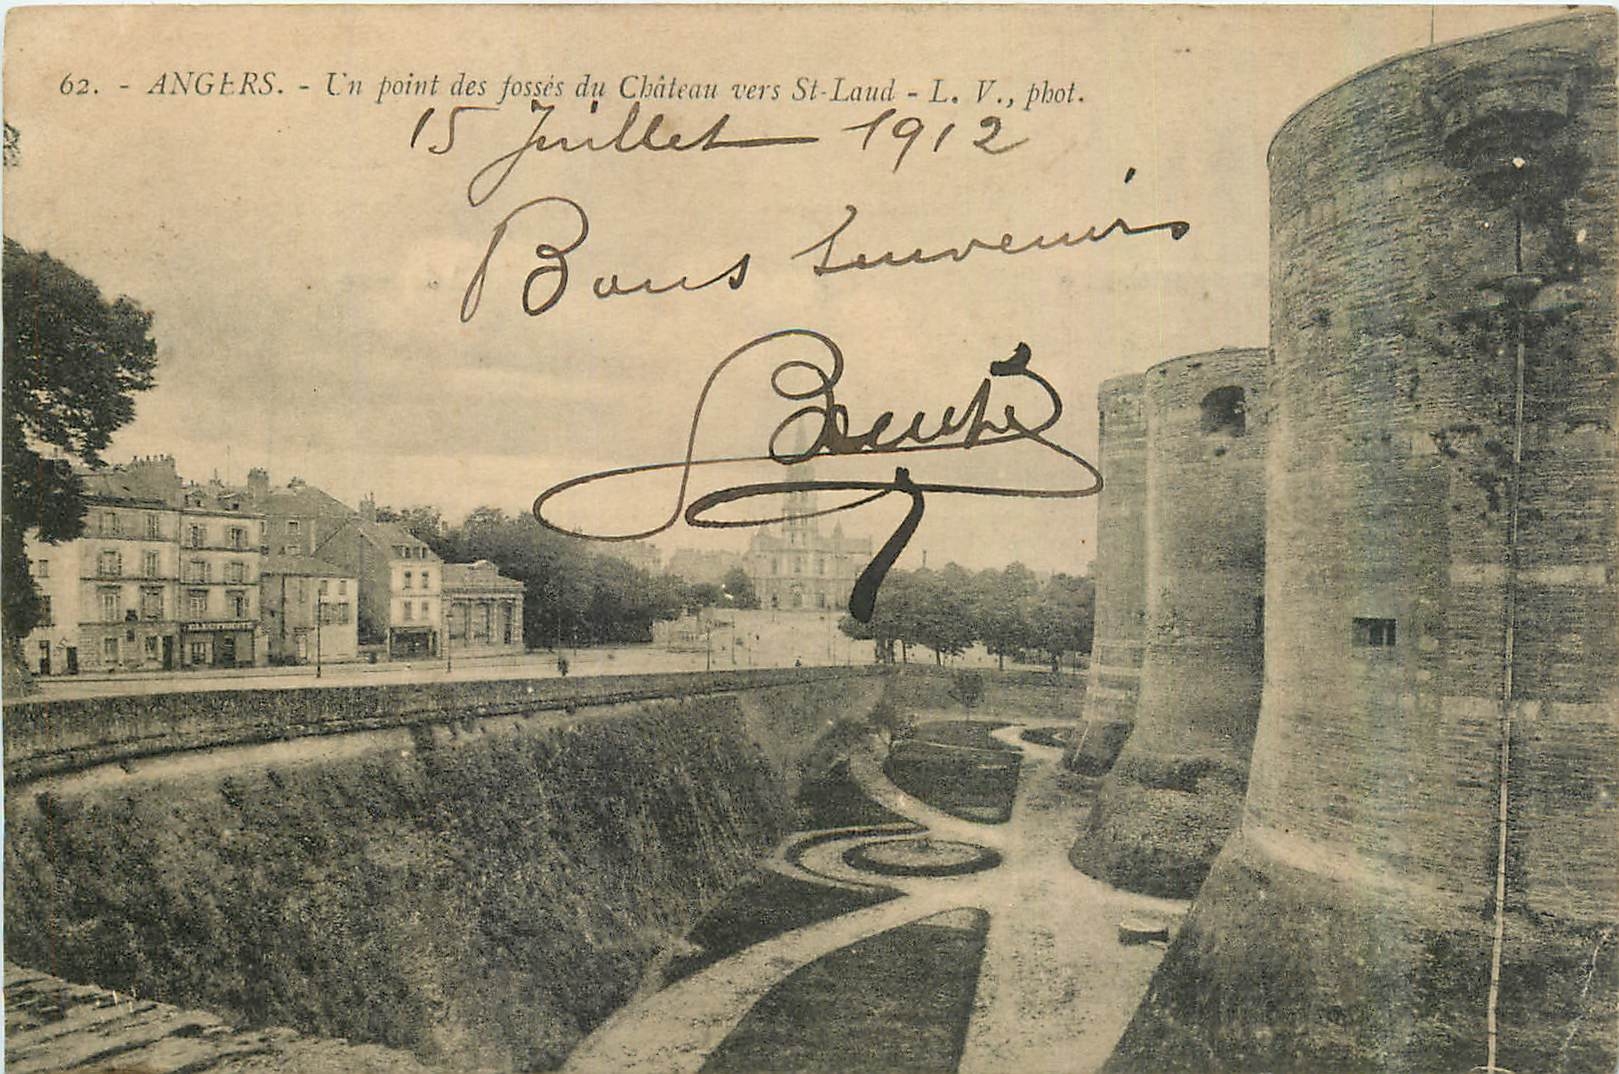 62. - ANGERS. - Un point des fossés du Château vers St-Laud - L. V., phot.
15 Juillet 1912
Bons Souvenirs